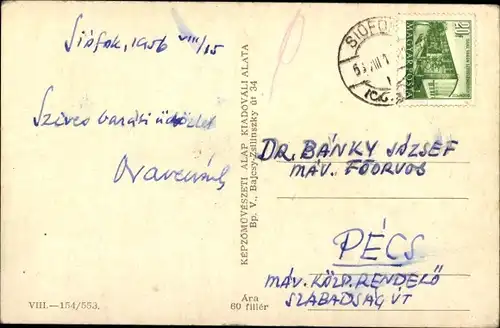 Siófok, 1956 VIII/15
Szives baráti üdvözlet
KÉPZŐMŰVÉSZETI ALAP KIADÓVÁLLALATA
Bp. V., Bajcsy-Zsilinszky út 34
SIÓFOK
MAGYAR POSTA
DR. BÁNKY JÓZSEF
MÁV. FŐORVOS
PÉCS
MÁV. KÖZP. RENDELŐ
SZABADSÁG ÚT
VIII.—154/553.
Ára
60 fillér